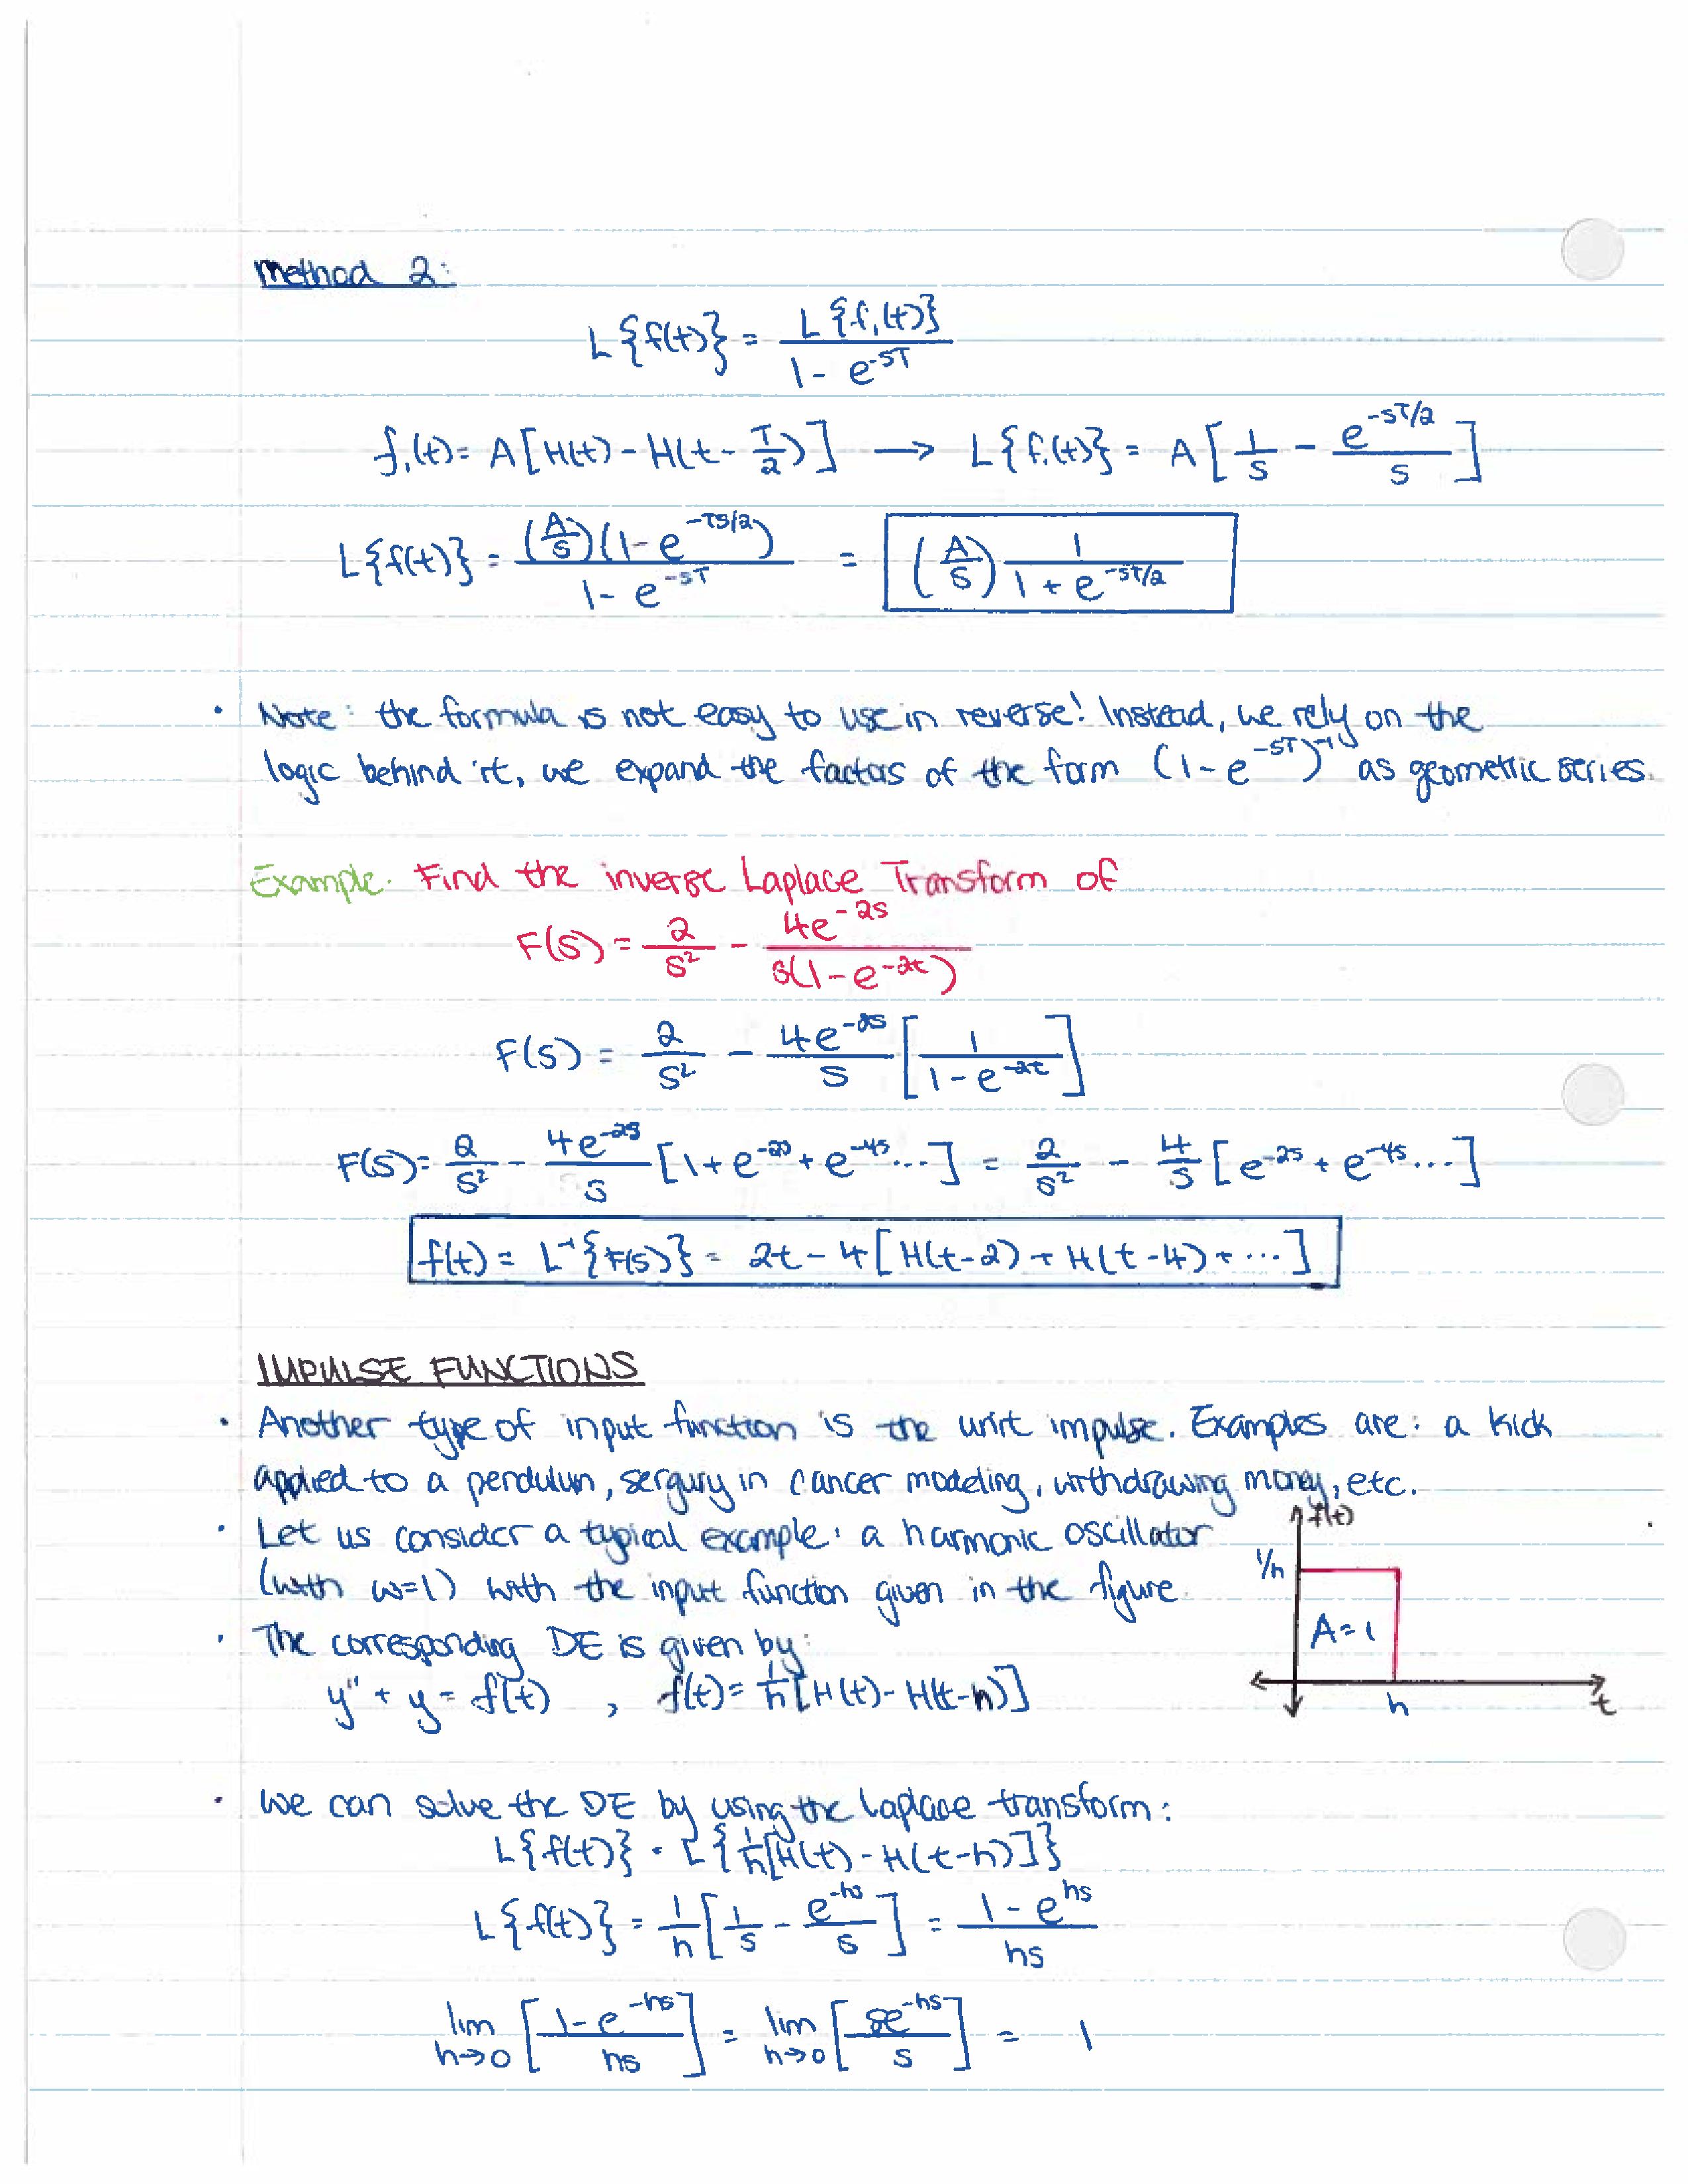 Method 2:
L{f(t)} = L{f₁(t)} / (1 - e^-sT)
f₁(t) = A[H(t) - H(t - T/2)] → L{f₁(t)} = A[1/s - e^-sT/2 / s]
L{f(t)} = (A/s)(1 - e^-Ts/2) / (1 - e^-sT) = (A/s) 1 / (1 + e^-sT/2)
• Note: the formula is not easy to use in reverse! Instead, we rely on the
logic behind it, we expand the factors of the form (1 - e^-sT)^-1 as geometric series.
Example. Find the inverse Laplace Transform of
F(s) = 2/s² - 4e^-2s / s(1 - e^-2t)
F(s) = 2/s² - 4e^-2s / s [1 / (1 - e^-2t)]
F(s) = 2/s² - 4e^-2s / s [1 + e^-2s + e^-4s ...] = 2/s² - 4/s [e^-2s + e^-4s ...]
f(t) = L^-1{F(s)} = 2t - 4[H(t-2) + H(t-4) + ...]
IMPULSE FUNCTIONS
• Another type of input function is the unit impulse. Examples are: a kick
applied to a pendulum, sergury in cancer modeling, withdrawing money, etc.
• Let us consider a typical example: a harmonic oscillator
(with w=1) with the input function given in the figure.
• The corresponding DE is given by:
y'' + y = f(t) , f(t) = 1/h [H(t) - H(t-h)]
f(t)
1/h
A=1
h
t
• We can solve the DE by using the Laplace transform:
L{f(t)} = L{1/h [H(t) - H(t-h)]}
L{f(t)} = 1/h [1/s - e^-hs / s] = (1 - e^hs) / hs
lim h→0 [(1 - e^-hs) / hs] = lim h→0 [se^-hs / s] = 1